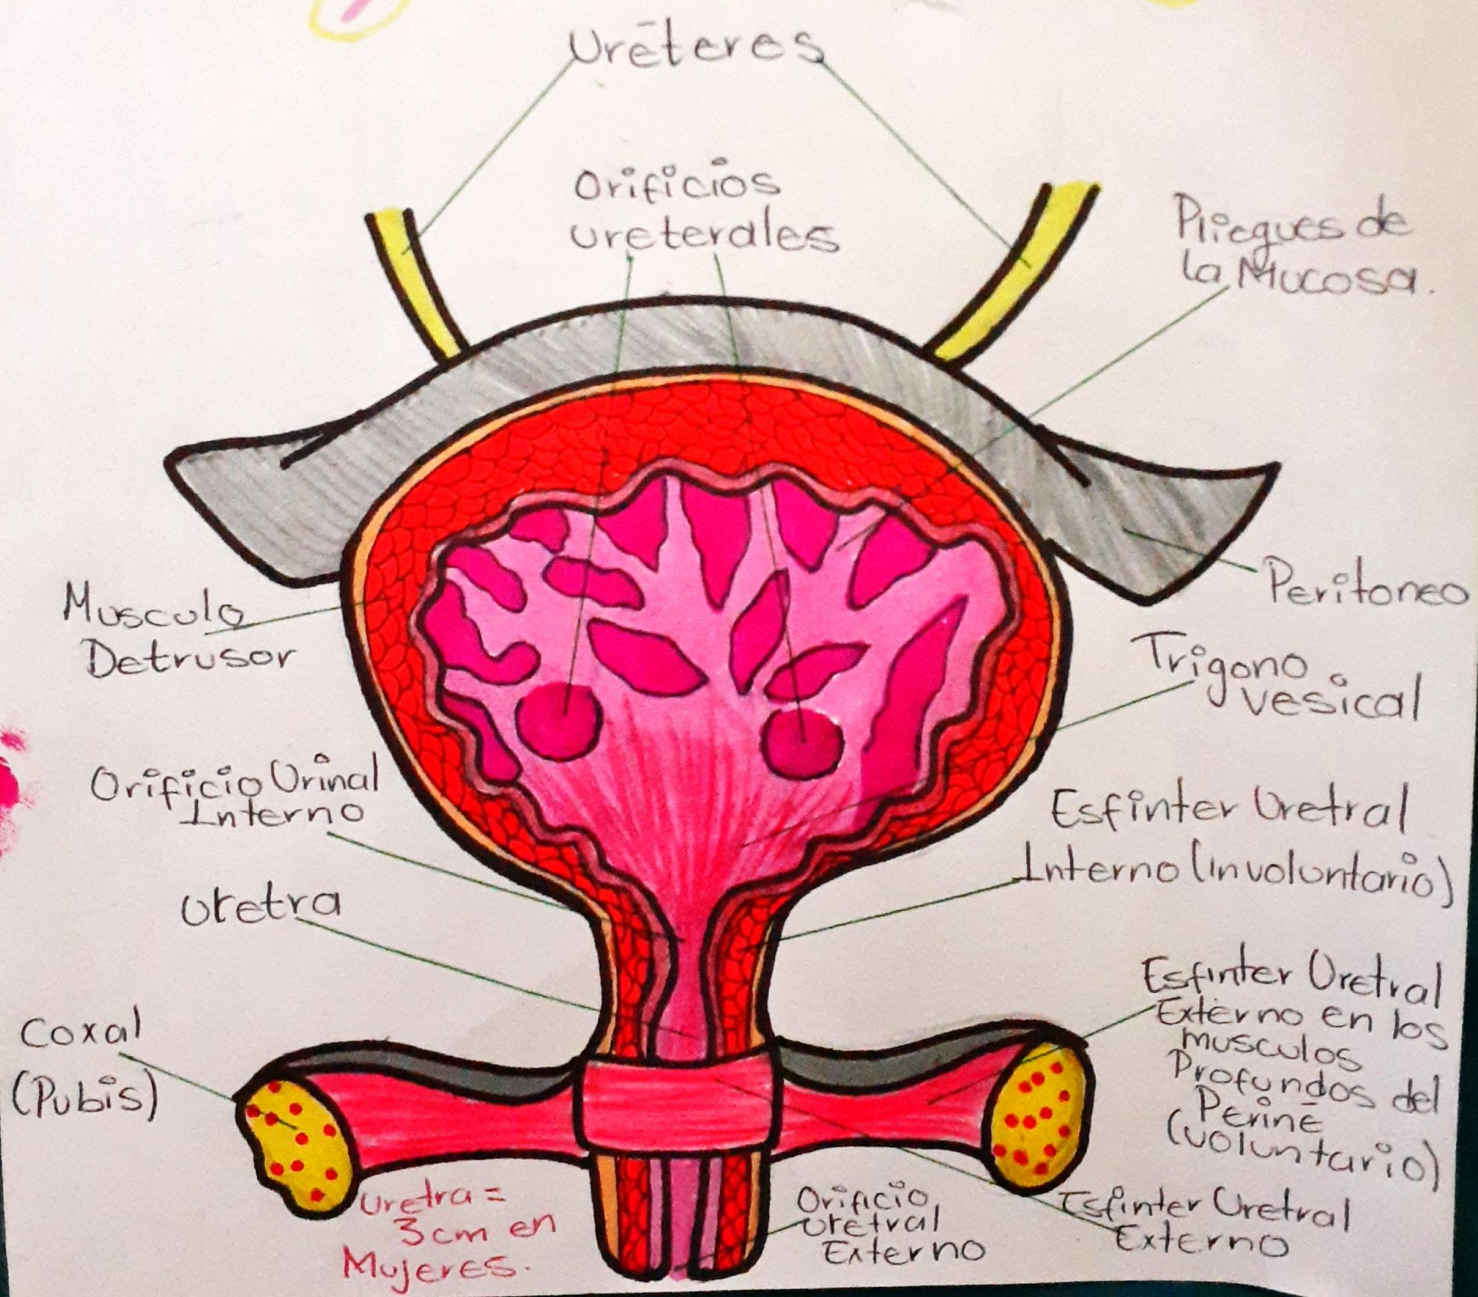 Uréteres
Orificios
ureterales
Pliegues de
la Mucosa.
Musculo
Detrusor
Peritoneo
Trigono
vesical
Orificio Urinal
Interno
Esfinter Uretral
Interno (involuntario)
Uretra
Esfinter Uretral
Externo en los
musculos
Profundos del
Periné
(voluntario)
Coxal
(Pubis)
Uretra =
3cm en
Mujeres.
Orificio
Uretral
Externo
Esfinter Uretral
Externo